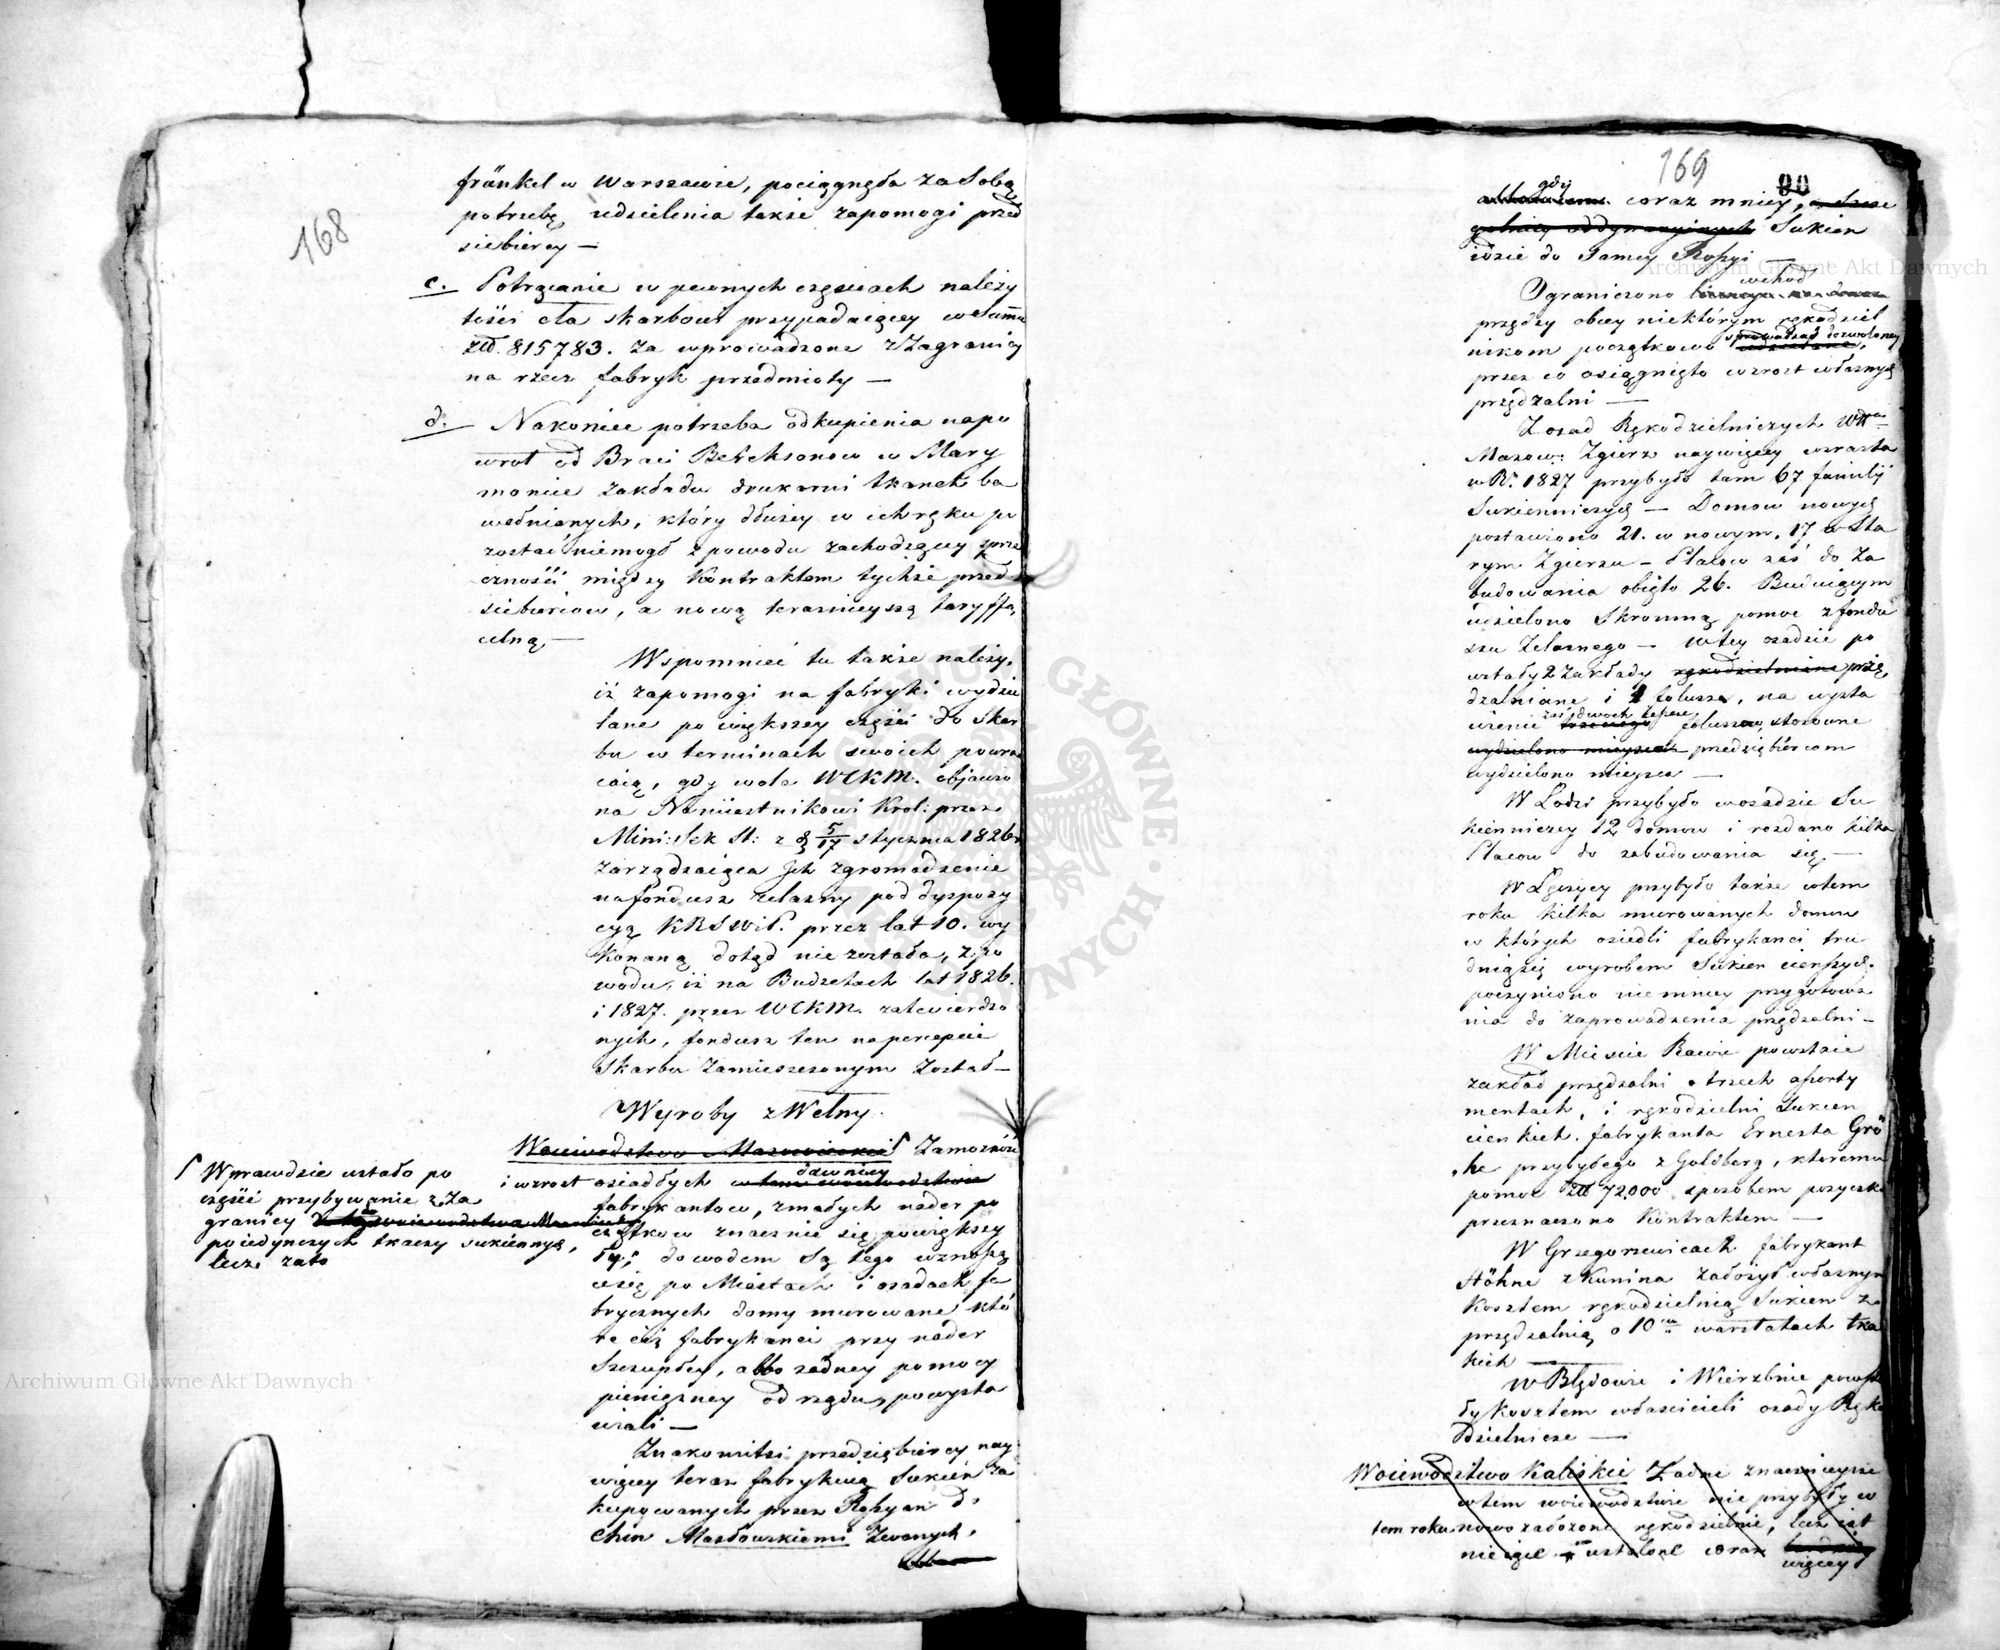 168
fränkel w Warszawie, pociągnęła za Sobą
potrzebę udzielenia także zapomogi przed
siebiercy —
c. Potrącanie w pewnych częściach należy
tości cła skarbowi przypadaiącey w Summie
złł. 815783. za wprowadzone z Zagranicy
na rzecz fabryk przedmioty —
d. Nakoniec potrzeba odkupienia napo
wrot od Braci w Mary
moncie zakładu drukarni tkanek ba
wełnianych, który dłużey w ich ręku po
zostać niemogł z powodu zachodzącey sprze
czności między Kontraktem tychże przed
siebiercow, a nową teraznieyszą taryffą
celną —
Wspomnieć tu także należy,
iż zapomogi na fabryki wydzie
lane po większey części do Skar
bu w terminach swoich powra
caią, gdy wola NCKM. objawio
na Namiestnikowi Krol: przez
Mini: Sek St: z d 5/17 stycznia 1826 r
zarządzaiąca Ich zgromadzenie
na fondusz żelazny pod dyspozy
cyą KRSWiP. przez lat 10. wy
konaną dotąd nie została, z po
wodu, iż na Budżetach lat 1826.
i 1827. przez NCKM. zatwierdzo
nych, fondusz ten na percepcie
Skarbu zamieszczonym został —
Wyroby z Wełny.
Woiewodztwo Mazowieckie Zamożność
i wzrost osiadłych dawniey w tem woiewodztwie
fabrykantow, z małych nader po
czątkow znacznie się powiększy
ły; dowodem są tego wznoszą
ce się po Miastach i osadach fa
brycznych domy murowane któ
re ciż fabrykanci przy nader
szczupłey, albo żadney pomocy
pienięzney od rządu, powysta
wiali —
Znakomitsi przedsiębiercy nay
więcey teraz fabrykuią Sukien za
kupowanych przez Rossyan d.
Chin Masłowskiemi zwanych,
Wprawdzie ustało po
części przybywanie z Za
granicy
poiedynczych tkaczy sukiennych,
lecz zato
169
90
gdy coraz mniey Sukien
idzie do Samey Rossyi —
Ograniczono wchod
przędzy obcey niektórym rękodziel
nikom początkowo sprowadzać dozwoloney,
przez co osiągnięto wzrost własnych
przędzalni —
Z osad Rękodzielniczych Wdztwa
Mazow: Zgierz naywięcey wzrasta
w R. 1827 przybyło tam 67 familij
Sukienniczych — Domow nowych
postawiono 21. w nowym, 17 w Sta
rym Zgierzu — Placow zaś do Za
budowania obięto 26. Buduiącym
udzielono Skromną pomoc z fondu
szu Zelaznego — w tey osadzie po
wstały 2 Zakłady rękodzielniane przę
dzalniane i 1 folusza, na wysta
wienie zaś dwoch foluszow, stosowne
wydzielono mieysca przedsiębiercom
wydzielono mieysca —
W Łodzi przybyło w osadzie Su
kienniczey 12 domow i rozdano kilka
Placow do zabudowania się —
W Łęczycy przybyło także w tem
roku kilka murowanych domow
w których osiedli fabrykanci tru
dniący się wyrobem Sukien cienszych.
poczyniono niemniey przygotowa
nia do zaprowadzenia przędzalni —
W Mieście Rawie powstaie
zakład przędzalni o trzech assorty
mentach, i rękodzielni Sukien
cienkich, fabrykanta Ernesta Grö
he przybyłego z Goldberg, ktoremu
pomoc złł 72,000 sposobem pozyczki
przeznaczono Kontraktem —
W Grzegorzewicach fabrykant
Höhne z Kunina założył własnym
Kosztem rękodzielnią Sukien z
przędzalnią o 10ciu warsztatach tka
kich —
W Błędowie i Wierzbnie powsta
ły kosztem właścicieli osady Ręko
dzielnicze —
Woiewodztwo Kaliskie Żadne znacznieysze
w tem woiewodztwie nie przybyły w
tem roku nowo założone rękodzielnie, lecz ist
nieiące ustalone coraz
więcey
Archiwum Główne Akt Dawnych
Archiwum Główne Akt Dawnych